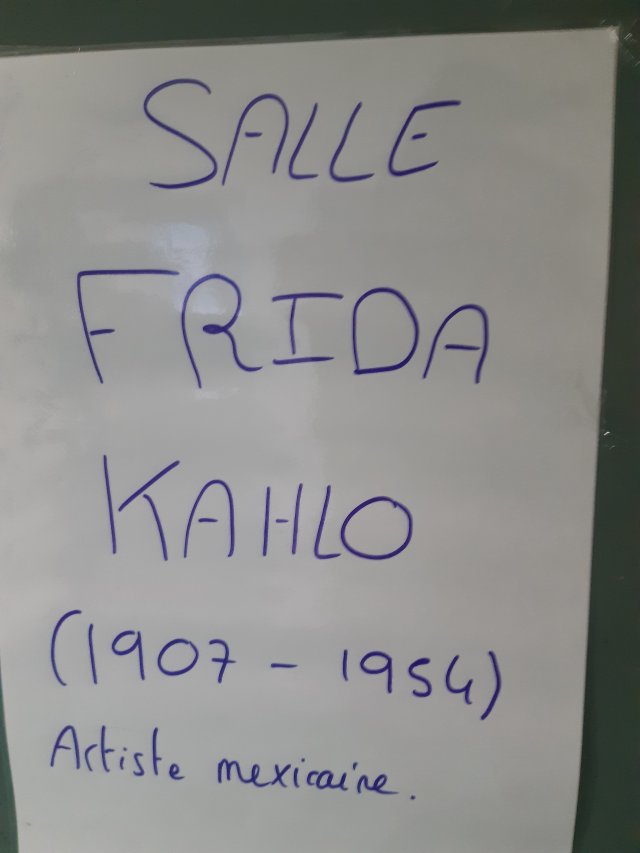 SALLE
FRIDA
KAHLO
(1907 - 1954)
Artiste mexicaine.